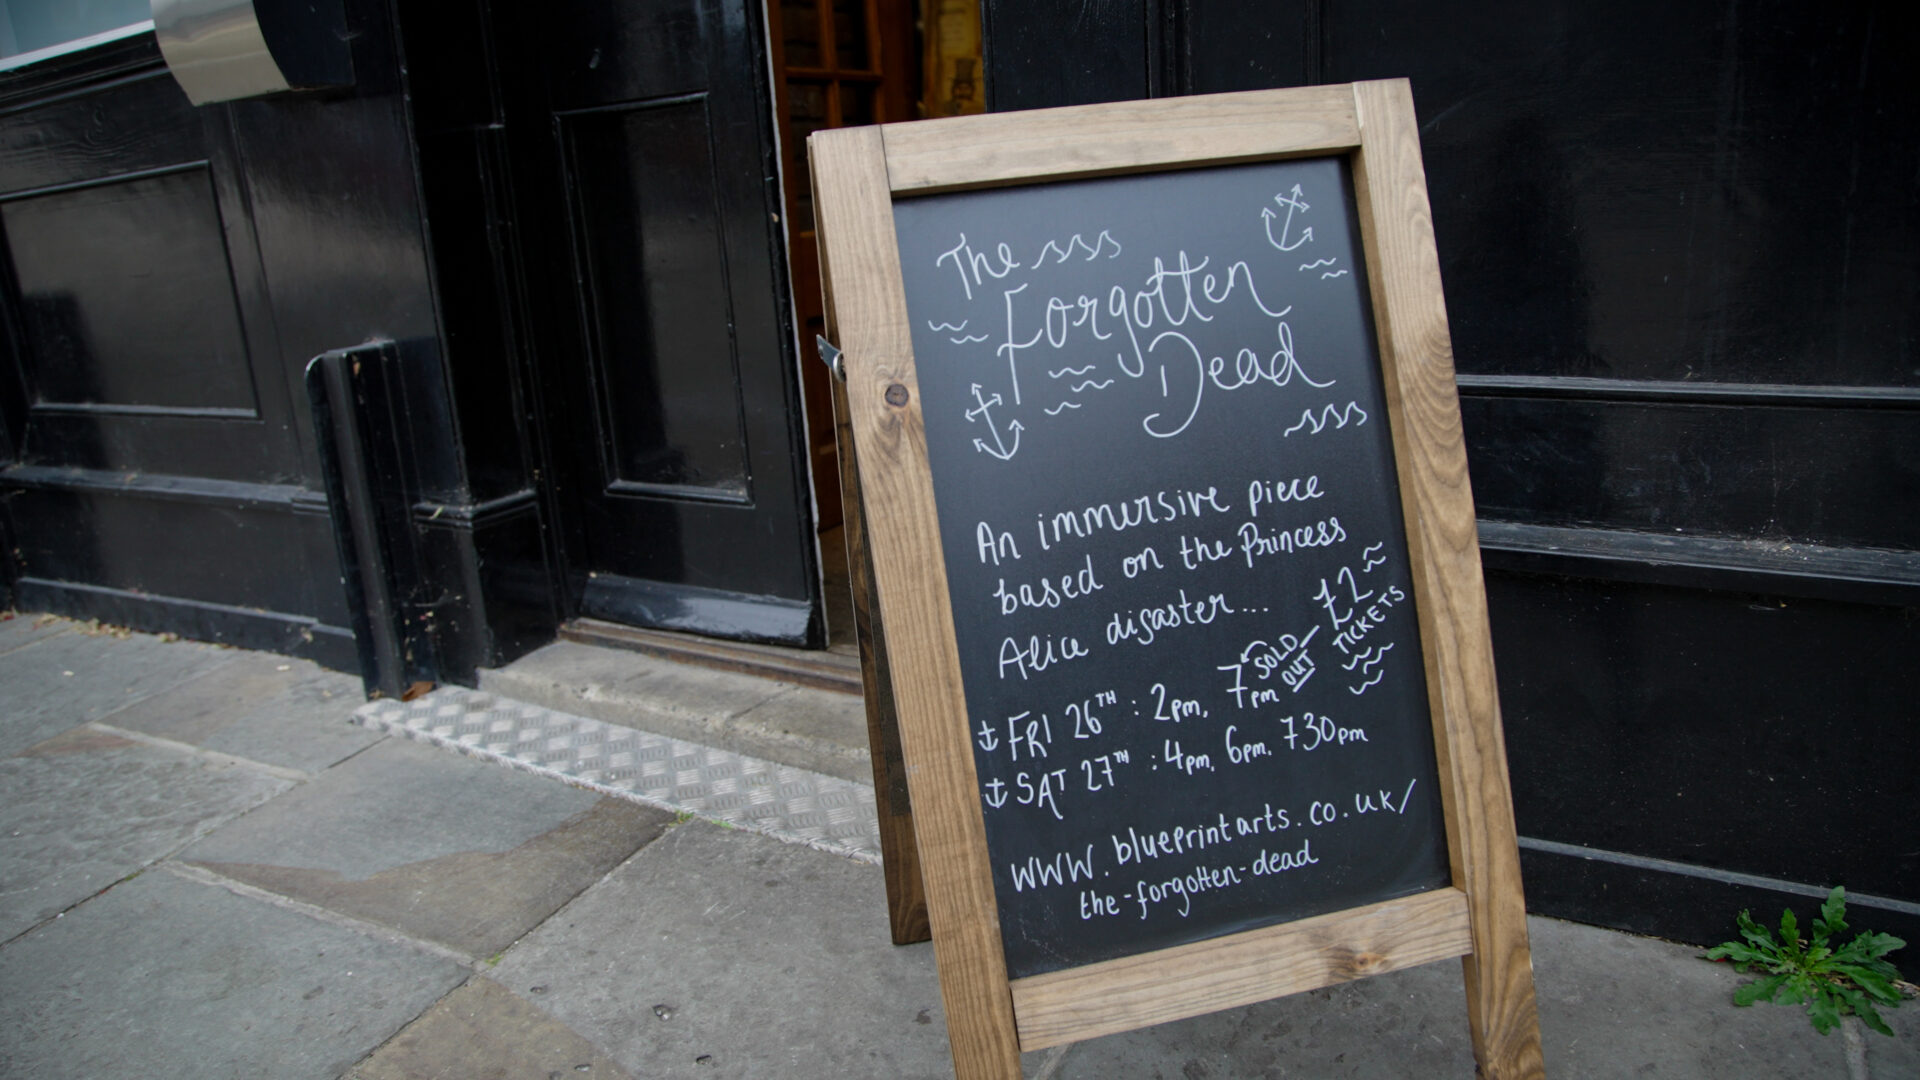 The
Forgotten
Dead
An immersive piece
based on the Princess
Alice disaster...
£2
TICKETS
SOLD
OUT
FRI 26TH : 2pm, 7pm
SAT 27TH : 4pm, 6pm, 730pm
www.blueprintarts.co.uk/
the-forgotten-dead